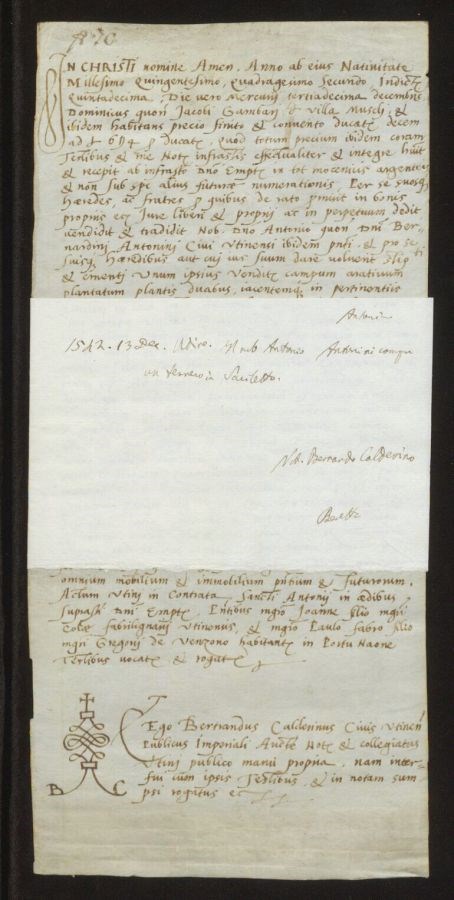 IN CHRISTI nomine Amen. Anno ab eius Nativitate
Millesimo Quingentesimo, Quadragesimo Secundo Indictẽ
Quintadecima, Die vero Mercurij tertiadecima decembris
Dominicus quon Jacobi Gambarj villa Musclj, &
ibidem habitans precio finito & convento ducatẽ decem
ad £ 6 ẜ 4 p Ducatẽ, quod totum precium ibidem coram
Testibus & me Notẽ infrasctis effectualiter & integre huit
& recepit ab infrascto Dno Empte in tot mocenicis argenteis
& non sub spe alius futuræ numerationis, Per se suosq
hæredes, ac fratres p quibus de rato pmisit in bonis
proprijs ecẽ Jure liberi & proprij ac in perpetuum dedit
vendidit & tradidit Nob. Dno Antonio quon Dni Ber-
nardini Antonini Civi Utinensi ibidem pnti & pro se
suisq hæredibus aut cui ius suum dare voluerit
& ementi Unum ipsius Venditẽ campum arativum
plantatum plantis duabus, iacentem in pertinentiis
Antonin
1542. 13 Dec. Udine. nob Antonio Antonini compra
un terreno in
Nob. Bernardo Calderino
omnium mobilium & immobilium pntium & futurorum.
Actum Utinj in Contrata Sancti Antonij in ædibus
suprascti Dni Emptẽ, Pntibus mgro Joanne filio mgri
fabrilignarij Utinensis, & mgro Paulo fabro filio
mgri Gregorij de Venzono habitante in Portu Naone
Testibus vocatẽ & rogatẽ
Ego Bertrandus Calderinus Civis Utinen
Publicus Imperiali Aucte Notẽ & collegiatus
Utini publico manu propria, nam inter-
fui cum ipsis Testibus, & in notam sum-
psi rogatus ec
B C